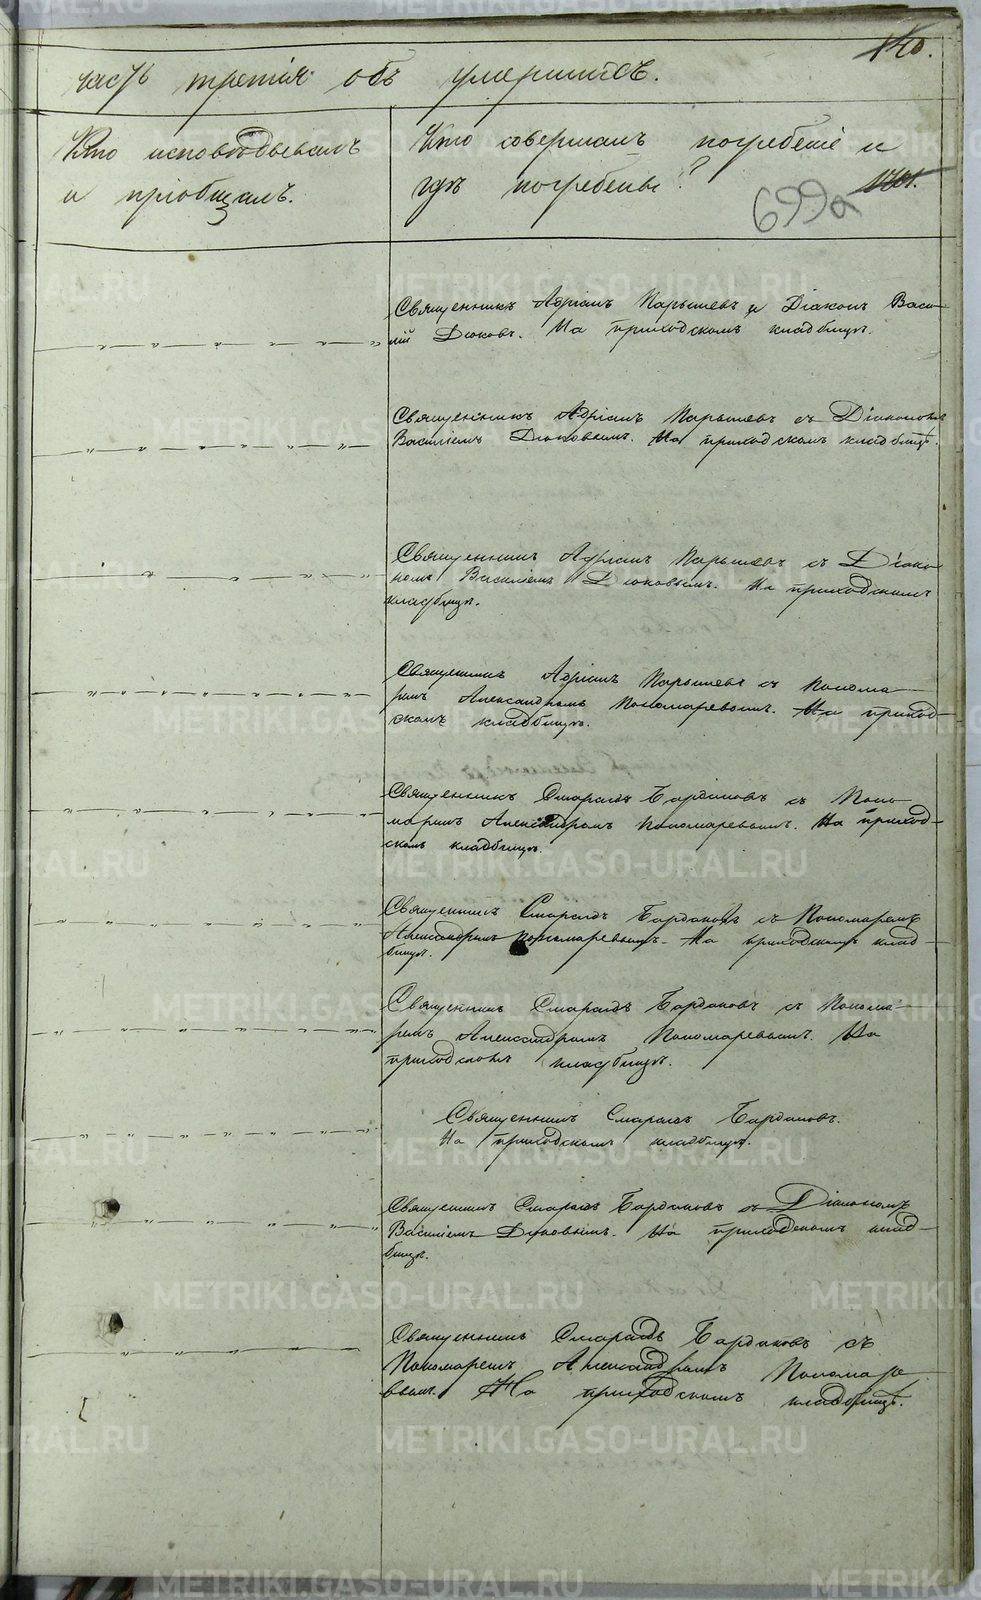 140.
часть третія объ умершихъ.
Кто исповѣдывалъ
и пріобщалъ.
Кто совершалъ погребеніе и
гдѣ погребены?
699а
Священникъ Адріанъ Парышевъ и Діаконъ Васи-
лій Дюковъ. На приходскомъ кладбищѣ.
Священникъ Адріанъ Парышевъ съ Діакономъ
Василіемъ Дюковымъ. На приходскомъ кладбищѣ.
Священникъ Адріанъ Парышевъ съ Діако-
номъ Василіемъ Дюковымъ. На приходскомъ
кладбищѣ.
Священникъ Адріанъ Парышевъ съ Понома-
ремъ Александромъ Пономаревымъ. На приход-
скомъ кладбищѣ.
Священникъ Смарагдъ Бардаковъ съ Поно-
маремъ Александромъ Пономаревымъ. На приход-
скомъ кладбищѣ.
Священникъ Смарагдъ Бардаковъ съ Пономаремъ
Александромъ Пономаревымъ. На приходскомъ клад-
бищѣ.
Священникъ Смарагдъ Бардаковъ съ Понома-
ремъ Александромъ Пономаревымъ. На
приходскомъ кладбищѣ.
Священникъ Смарагдъ Бардаковъ.
На приходскомъ кладбищѣ.
Священникъ Смарагдъ Бардаковъ съ Діакономъ
Василіемъ Дюковымъ. На приходскомъ клад-
бищѣ.
Священникъ Смарагдъ Бардаковъ съ
Пономаремъ Александромъ Пономаре-
вымъ. На приходскомъ кладбищѣ.
METRIKI.GASO-URAL.RU